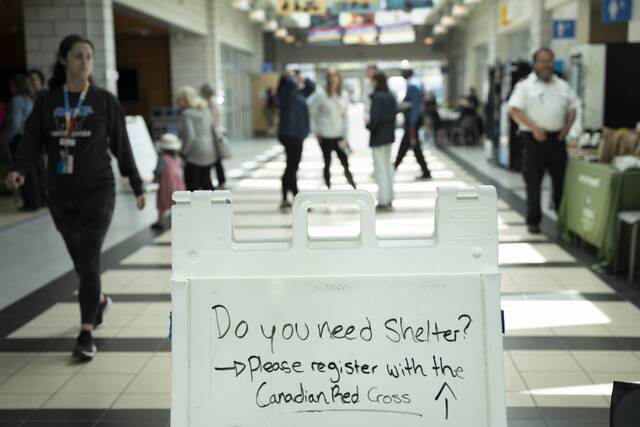 Do you need Shelter?
→ Please register with the
Canadian Red Cross ↑